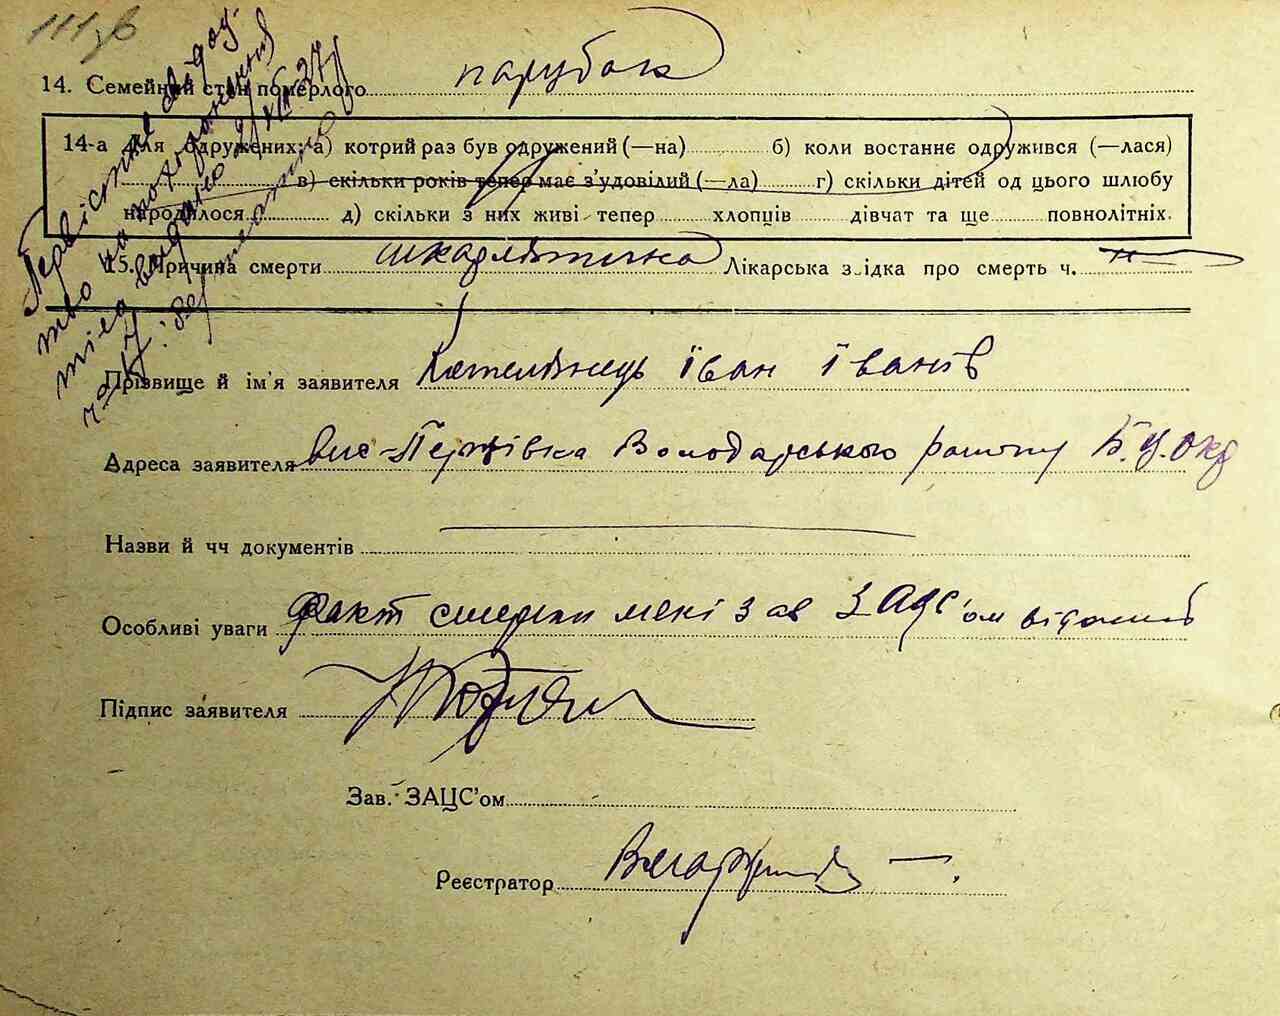 111зв
Первістне свідоц-
тво на похоронення
тіла видано 2/XII-27р
14. Семейний стан померлого парубок
14-а Для одружених: а) котрий раз був одружений (—на) б) коли востаннє одружився (—лася)
в) скільки років тепер має з'удовілий (—ла) г) скільки дітей од цього шлюбу
народилося д) скільки з них живі тепер хлопців дівчат та ще повнолітніх.
15. Причина смерти шкарлятина Лікарська звідка про смерть ч. —"—
Прізвище й ім'я заявителя Іван Іванів
Адреса заявителя Володарського району Б.Ц. Окр
Назви й чч документів —
Особливі уваги Факт смерти мені Зав ЗАЦС'ом відомий
Підпис заявителя
Зав. ЗАЦС'ом
Реєстратор